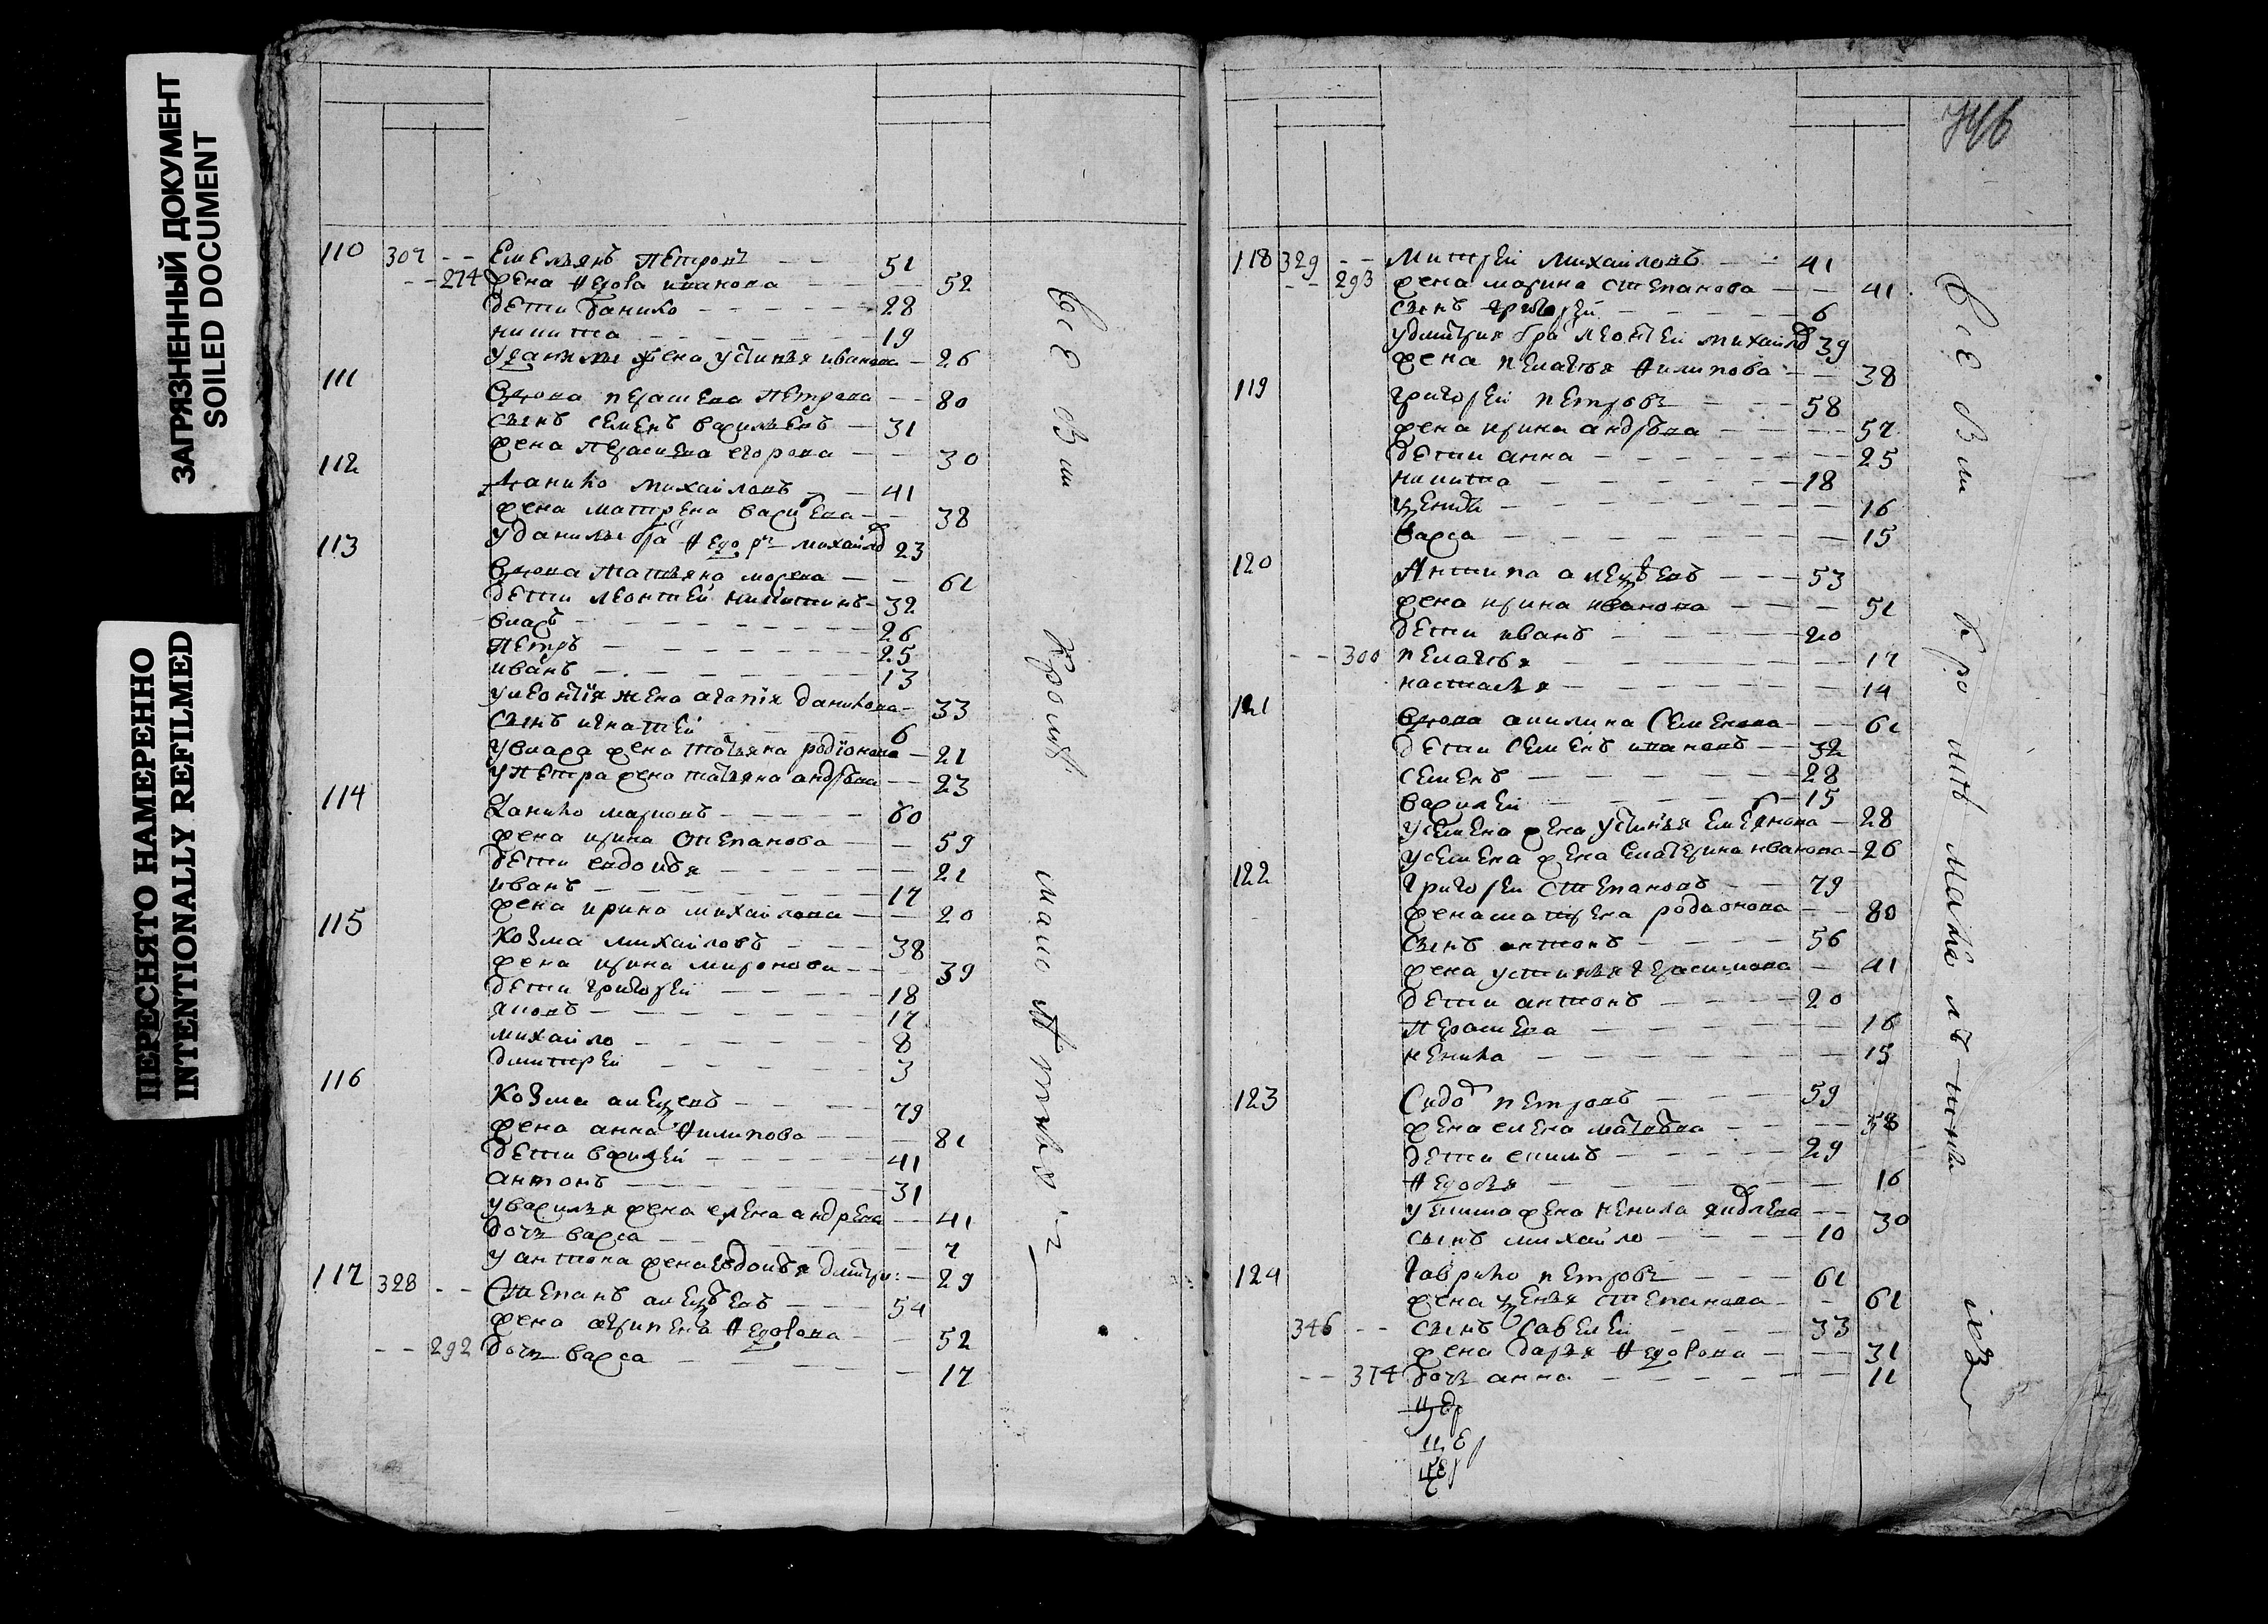 ЗАГРЯЗНЕННЫЙ ДОКУМЕНТ
SOILED DOCUMENT
ПЕРЕСНЯТО НАМЕРЕННО
INTENTIONALLY REFILMED
110 307 -- Емельянъ Петровъ -- 51
-- 274 жена Федора иванова -- 52
дети Данило -- 28
никита -- 19
у данилы жена устинья иванова -- 26
111 Вдова Парасковья Петрова -- 80
сынъ семенъ васильевъ -- 31
жена Парасковья егорова -- 30
112 Данило михаиловъ -- 41
жена матрена васильева -- 38
у данилы бра Федоръ михаилов 23
113 Вдова татьяна -- 61
дети леонтеи никитинъ -- 32
власъ -- 26
петръ -- 25
иванъ -- 13
у леонтïя жена агапïя данилова -- 33
сынъ игнатеи -- 6
у власа жена татьяна родïонова -- 21
у петра жена татьяна андрѣва -- 23
114 Данило марковъ -- 60
жена ирина степанова -- 59
дети евдокѣя -- 21
иванъ -- 17
жена ирина михаилова -- 20
115 Козма михаиловъ -- 38
жена ирина миронова -- 39
дети григореи -- 18
яковъ -- 17
михаило -- 8
дмитреи -- 3
116 Козма алексевъ -- 79
жена анна Филипова -- 81
дети василеи -- 41
антонъ -- 31
у василья жена елена андрева -- 41
дочь васса -- 7
у антона жена евдокѣя дмитри: -- 29
117 328 -- Степанъ алексѣевъ -- 54
жена агрипена Федорова -- 52
-- 292 дочь васса -- 17
все вми
118 329 -- Митреи михаиловъ -- 41
-- 293 жена марина степанова -- 41
сынъ григореи -- 6
у дмитрия бра леонтеи михаилов 39
жена пелагѣя Филипова -- 38
119 григореи петровъ -- 58
жена ирина андрѣва -- 57
дети анна -- 25
никита -- 18
-- 16
васса -- 15
120 Антипа алексѣевъ -- 53
жена ирина иванова -- 51
дети иванъ -- 20
-- 300 пелагѣя -- 17
настасья -- 14
121 Вдова акилина семенова -- 61
дети семенъ ивановъ -- 32
семенъ -- 28
василеи -- 15
у семена жена устинья емелянова -- 28
у семена жена екатерина иванова -- 26
122 Григореи степановъ -- 79
жена матрена родионова -- 80
сынъ антонъ -- 56
жена устинья герасимова -- 41
дети антонъ -- 20
парасковья -- 16
ненила -- 15
123 Сидор петровъ -- 59
жена елена матвѣва -- 58
дети екимъ -- 29
Федосья -- 16
у екима жена ненила яковлева -- 30
сынъ михаило -- 10
124 Гаврило петровъ -- 61
жена ксенья степанова -- 61
346 -- сынъ савелеи -- 33
жена дарья Федорова -- 31
-- 374 дочь анна -- 11
все вми